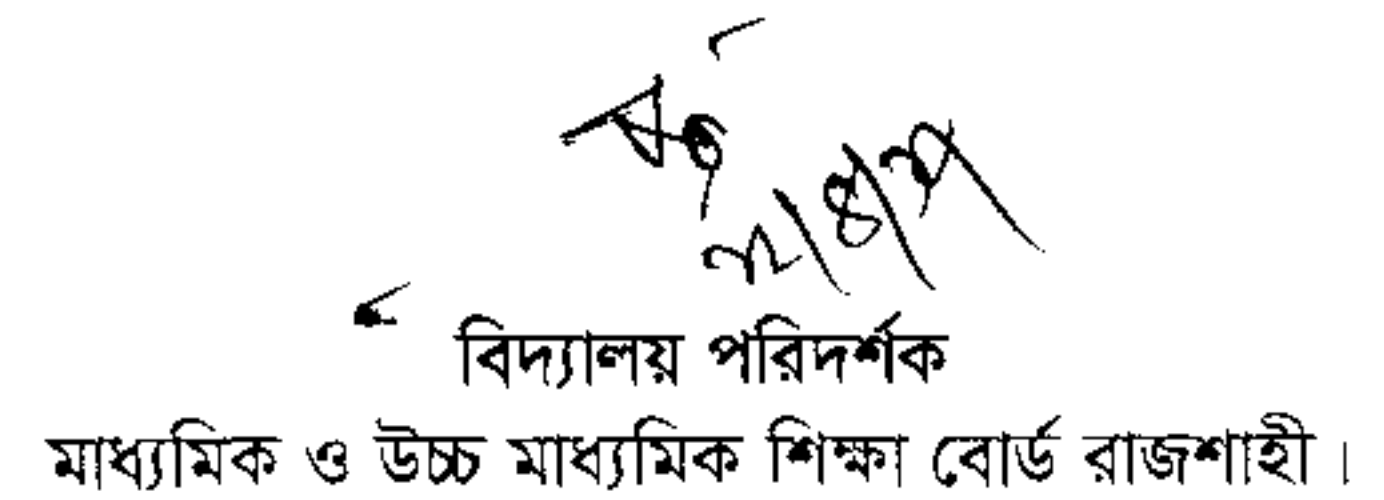 বিদ্যালয় পরিদর্শক
মাধ্যমিক ও উচ্চ মাধ্যমিক শিক্ষা বোর্ড রাজশাহী।